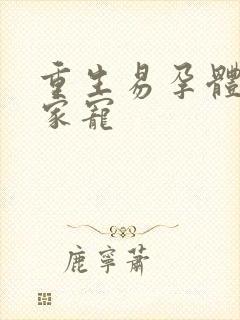 重生易孕體
家寵
鹿寧蕭